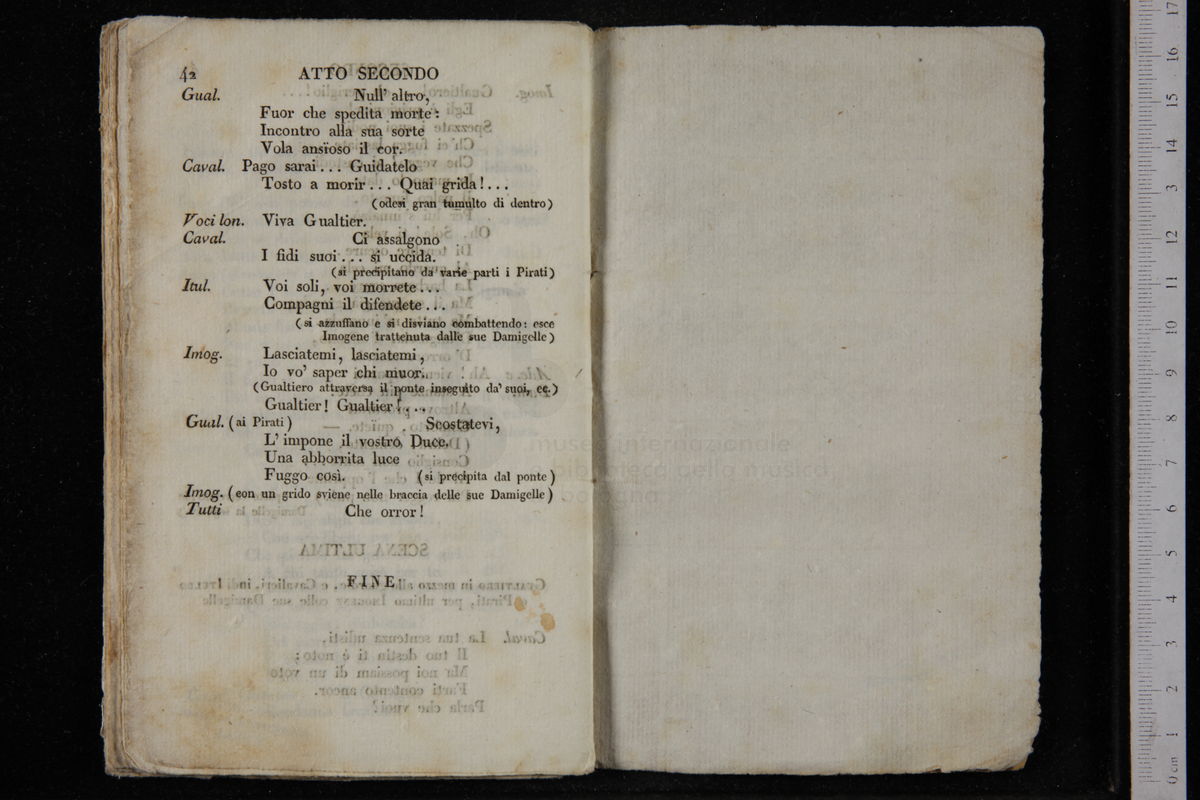 42 ATTO SECONDO
Gual. Null' altro,
Fuor che spedita morte:
Incontro alla sua sorte
Vola ansïoso il cor.
Caval. Pago sarai... Guidatelo
Tosto a morir... Quai grida!...
(odesi gran tumulto di dentro)
Voci lon. Viva Gualtier.
Caval. Ci assalgono
I fidi suoi... si uccida.
(si precipitano da varie parti i Pirati)
Itul. Voi soli, voi morrete...
Compagni il difendete...
(si azzuffano e si disviano combattendo: esce
Imogene trattenuta dalle sue Damigelle)
Imog. Lasciatemi, lasciatemi,
Io vo' saper chi muor.
(Gualtiero attraversa il ponte inseguito da' suoi, ec.)
Gualtier! Gualtier!...
Gual. (ai Pirati) Scostatevi,
L' impone il vostro Duce.
Una abborrita luce
Fuggo così. (si precipita dal ponte)
Imog. (con un grido sviene nelle braccia delle sue Damigelle)
Tutti Che orror!
FINE.
museo internazionale
biblioteca della musica
bologna
0 cm 1 2 3 4 5 6 7 8 9 10 11 12 13 14 15 16 17